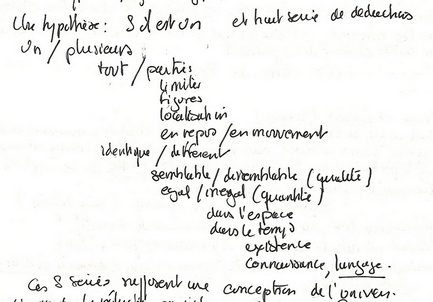 Une hypothèse : S'il est un et huit series de deductions
Un / plusieurs
tout / parties
limites
figures
localisation
en repos / en mouvement
identique / different
semblable / dissemblable (qualité)
egal / inegal (quantité)
dans l'espace
dans le temps
existence
connaissance, langage.
Ces 8 series supposent une conception de l'univers.